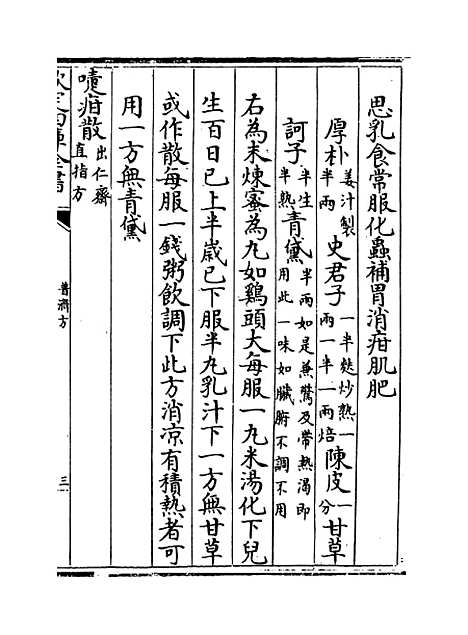 思乳食常服化蟲補胃消疳肌肥
厚朴姜汁製半兩 史君子一半麩炒熟一兩一半一兩焙 陳皮一分 甘草
訶子半生半熟 青黛半兩如是兼驚及帶熱渴即用此一味如臟腑不調不用
右為末煉蜜為丸如鷄頭大每服一丸米湯化下兒
生百日已上半歲已下服半丸乳汁下一方無甘草
或作散每服一錢粥飲調下此方消凉有積熱者可
用一方無青黛
嘖疳散出仁齋直指方
欽定四庫全書
普濟方
三